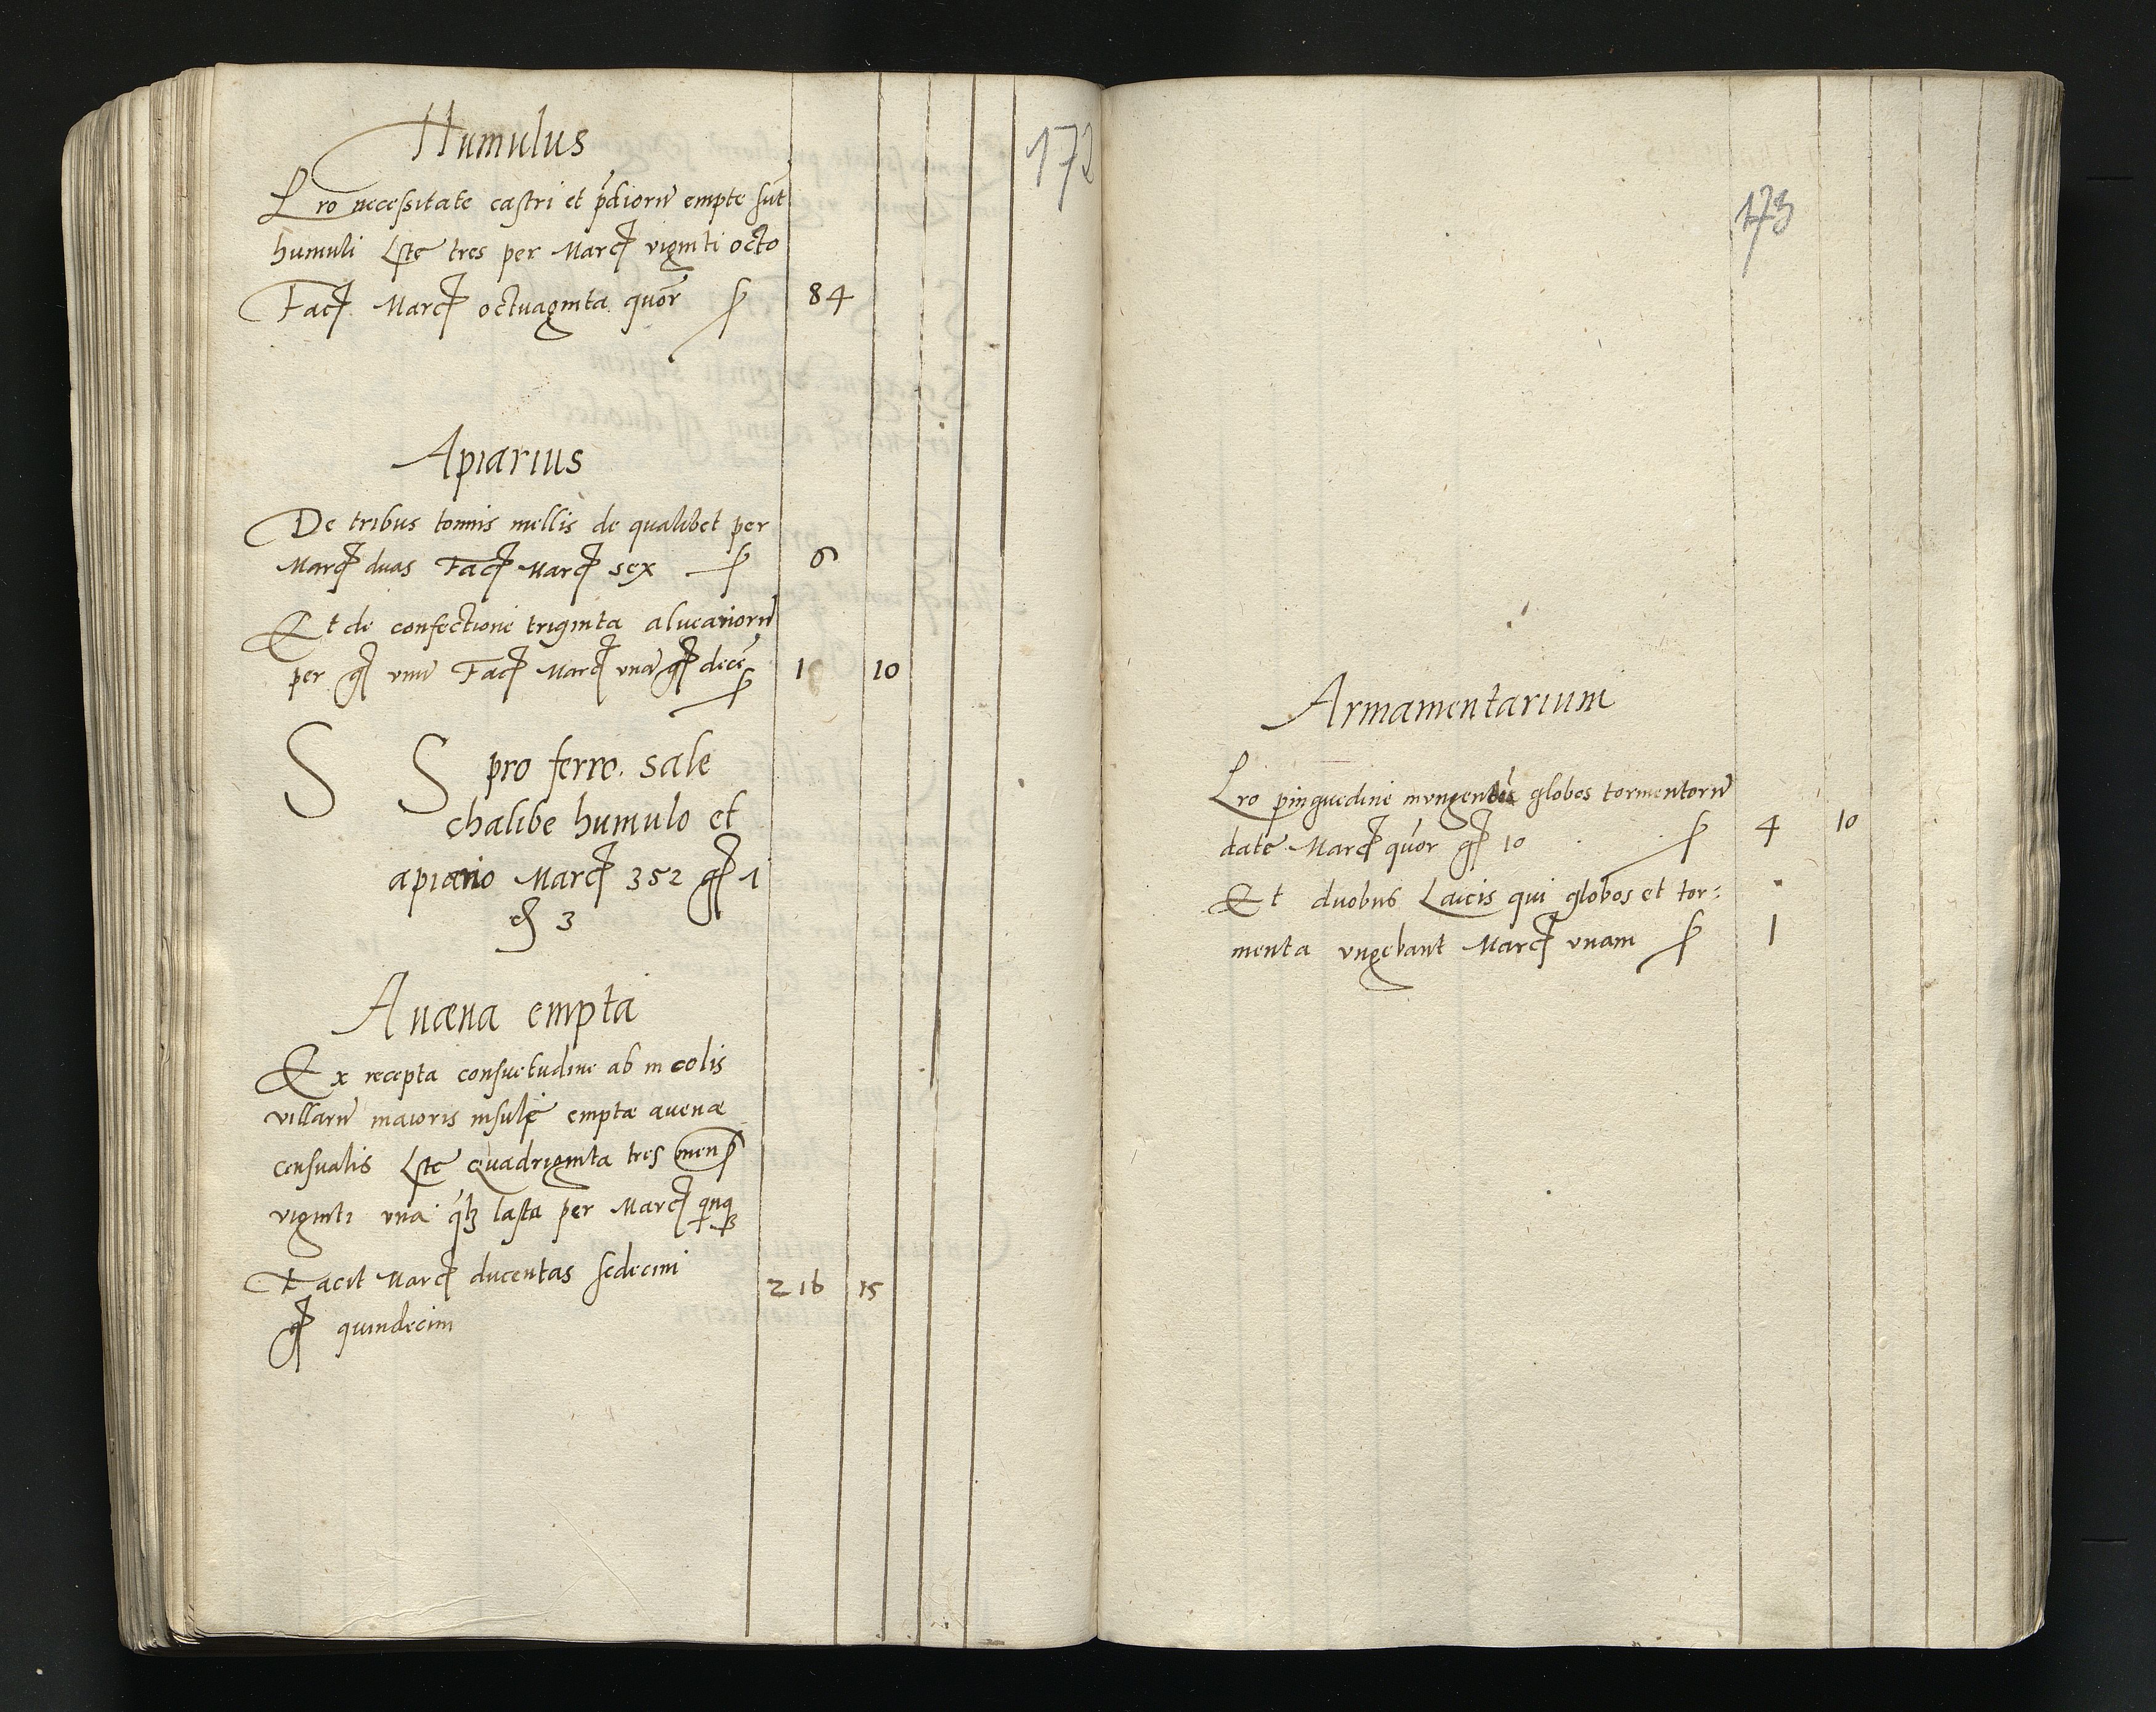 172
Humulus
Pro necessitate castri et p̃dioru͂ empte su͂t
humuli Lste tres per Marc viginti octo
Fac Marc octuaginta quor̃ 84
Apiarius
De tribus tonnis mellis de qualibet per
Marc duas Fac Marc sex 6
Et de confectione triginta alueariorũ
per gʳ vnũ Fac Marc vnã gʳ decẽ 1 10
S S pro ferro. sale
chalibe humulo et
apiario Marc 352 gʳ 1
₰ 3
Auæna empta
Ex recepta consuetudine ab in colis
villarũ maioris insulę emptæ auenæ
censualis Lste quadriginta tres men
viginti vna qłꝫ lasta per Marc qinqꝫ
Facit Marc ducentas sedecim 216 15
gʳ quindecim
173
Armamentarium
Pro pinguedine globos tormentorũ
date Marc quõr gʳ 10 4 10
Et duobus Laicis qui globos et tor:
menta vngebant Marc vnam 1